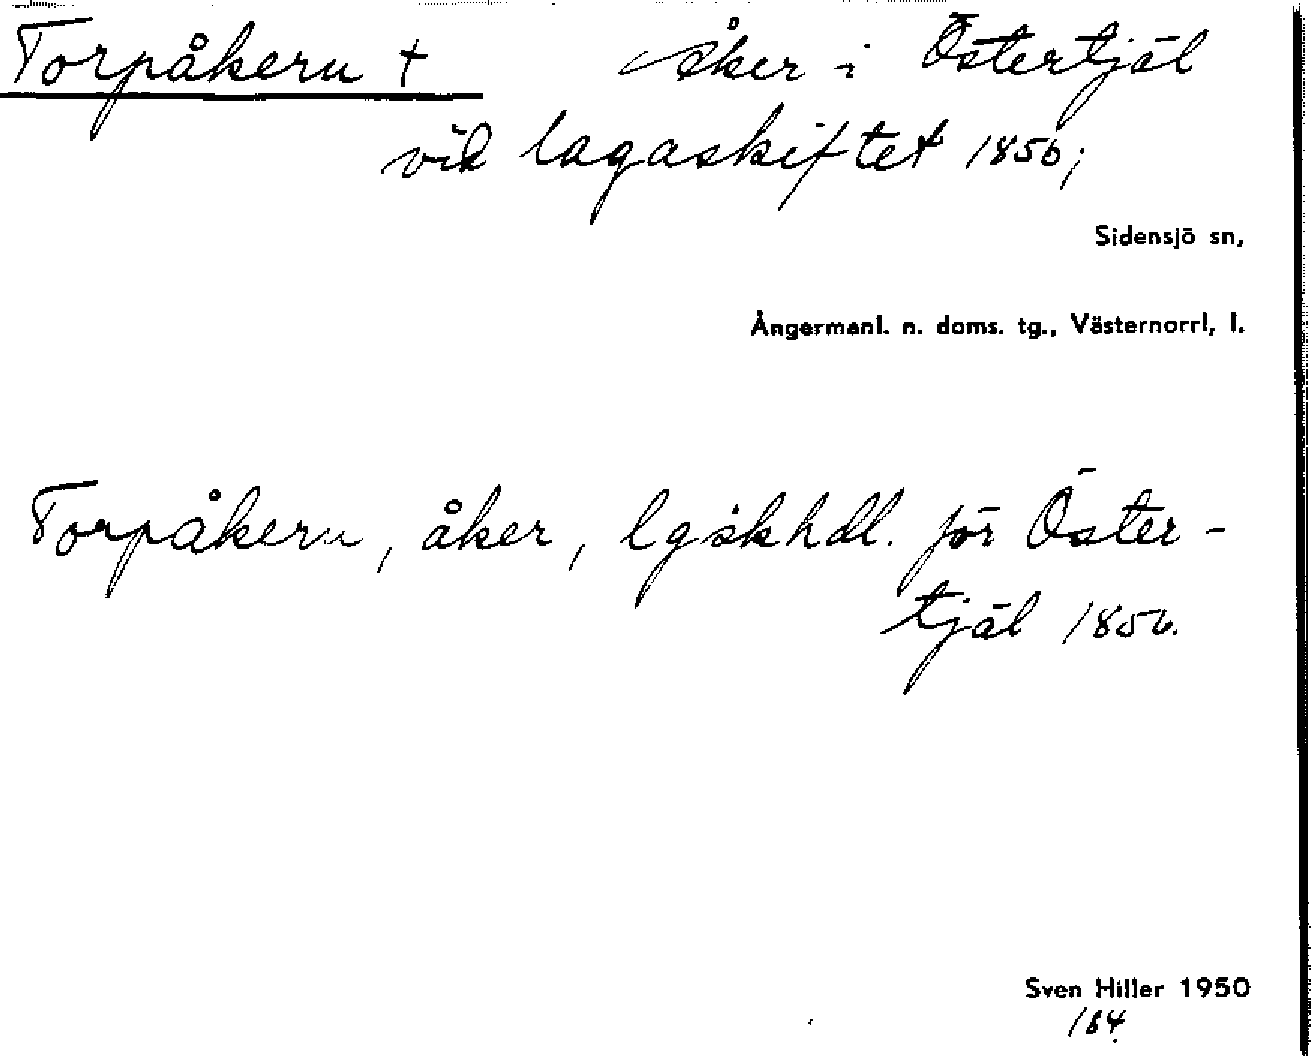 Torpåkern + åker i Östertjäl
vid lagaskiftet 1856;
Sidensjö sn,
Ångermanl. n. doms. tg., Västernorrl, l.
Torpåkern, åker, lgskhdl. för Öster-
tjäl 1856.
Sven Hiller 1950
184